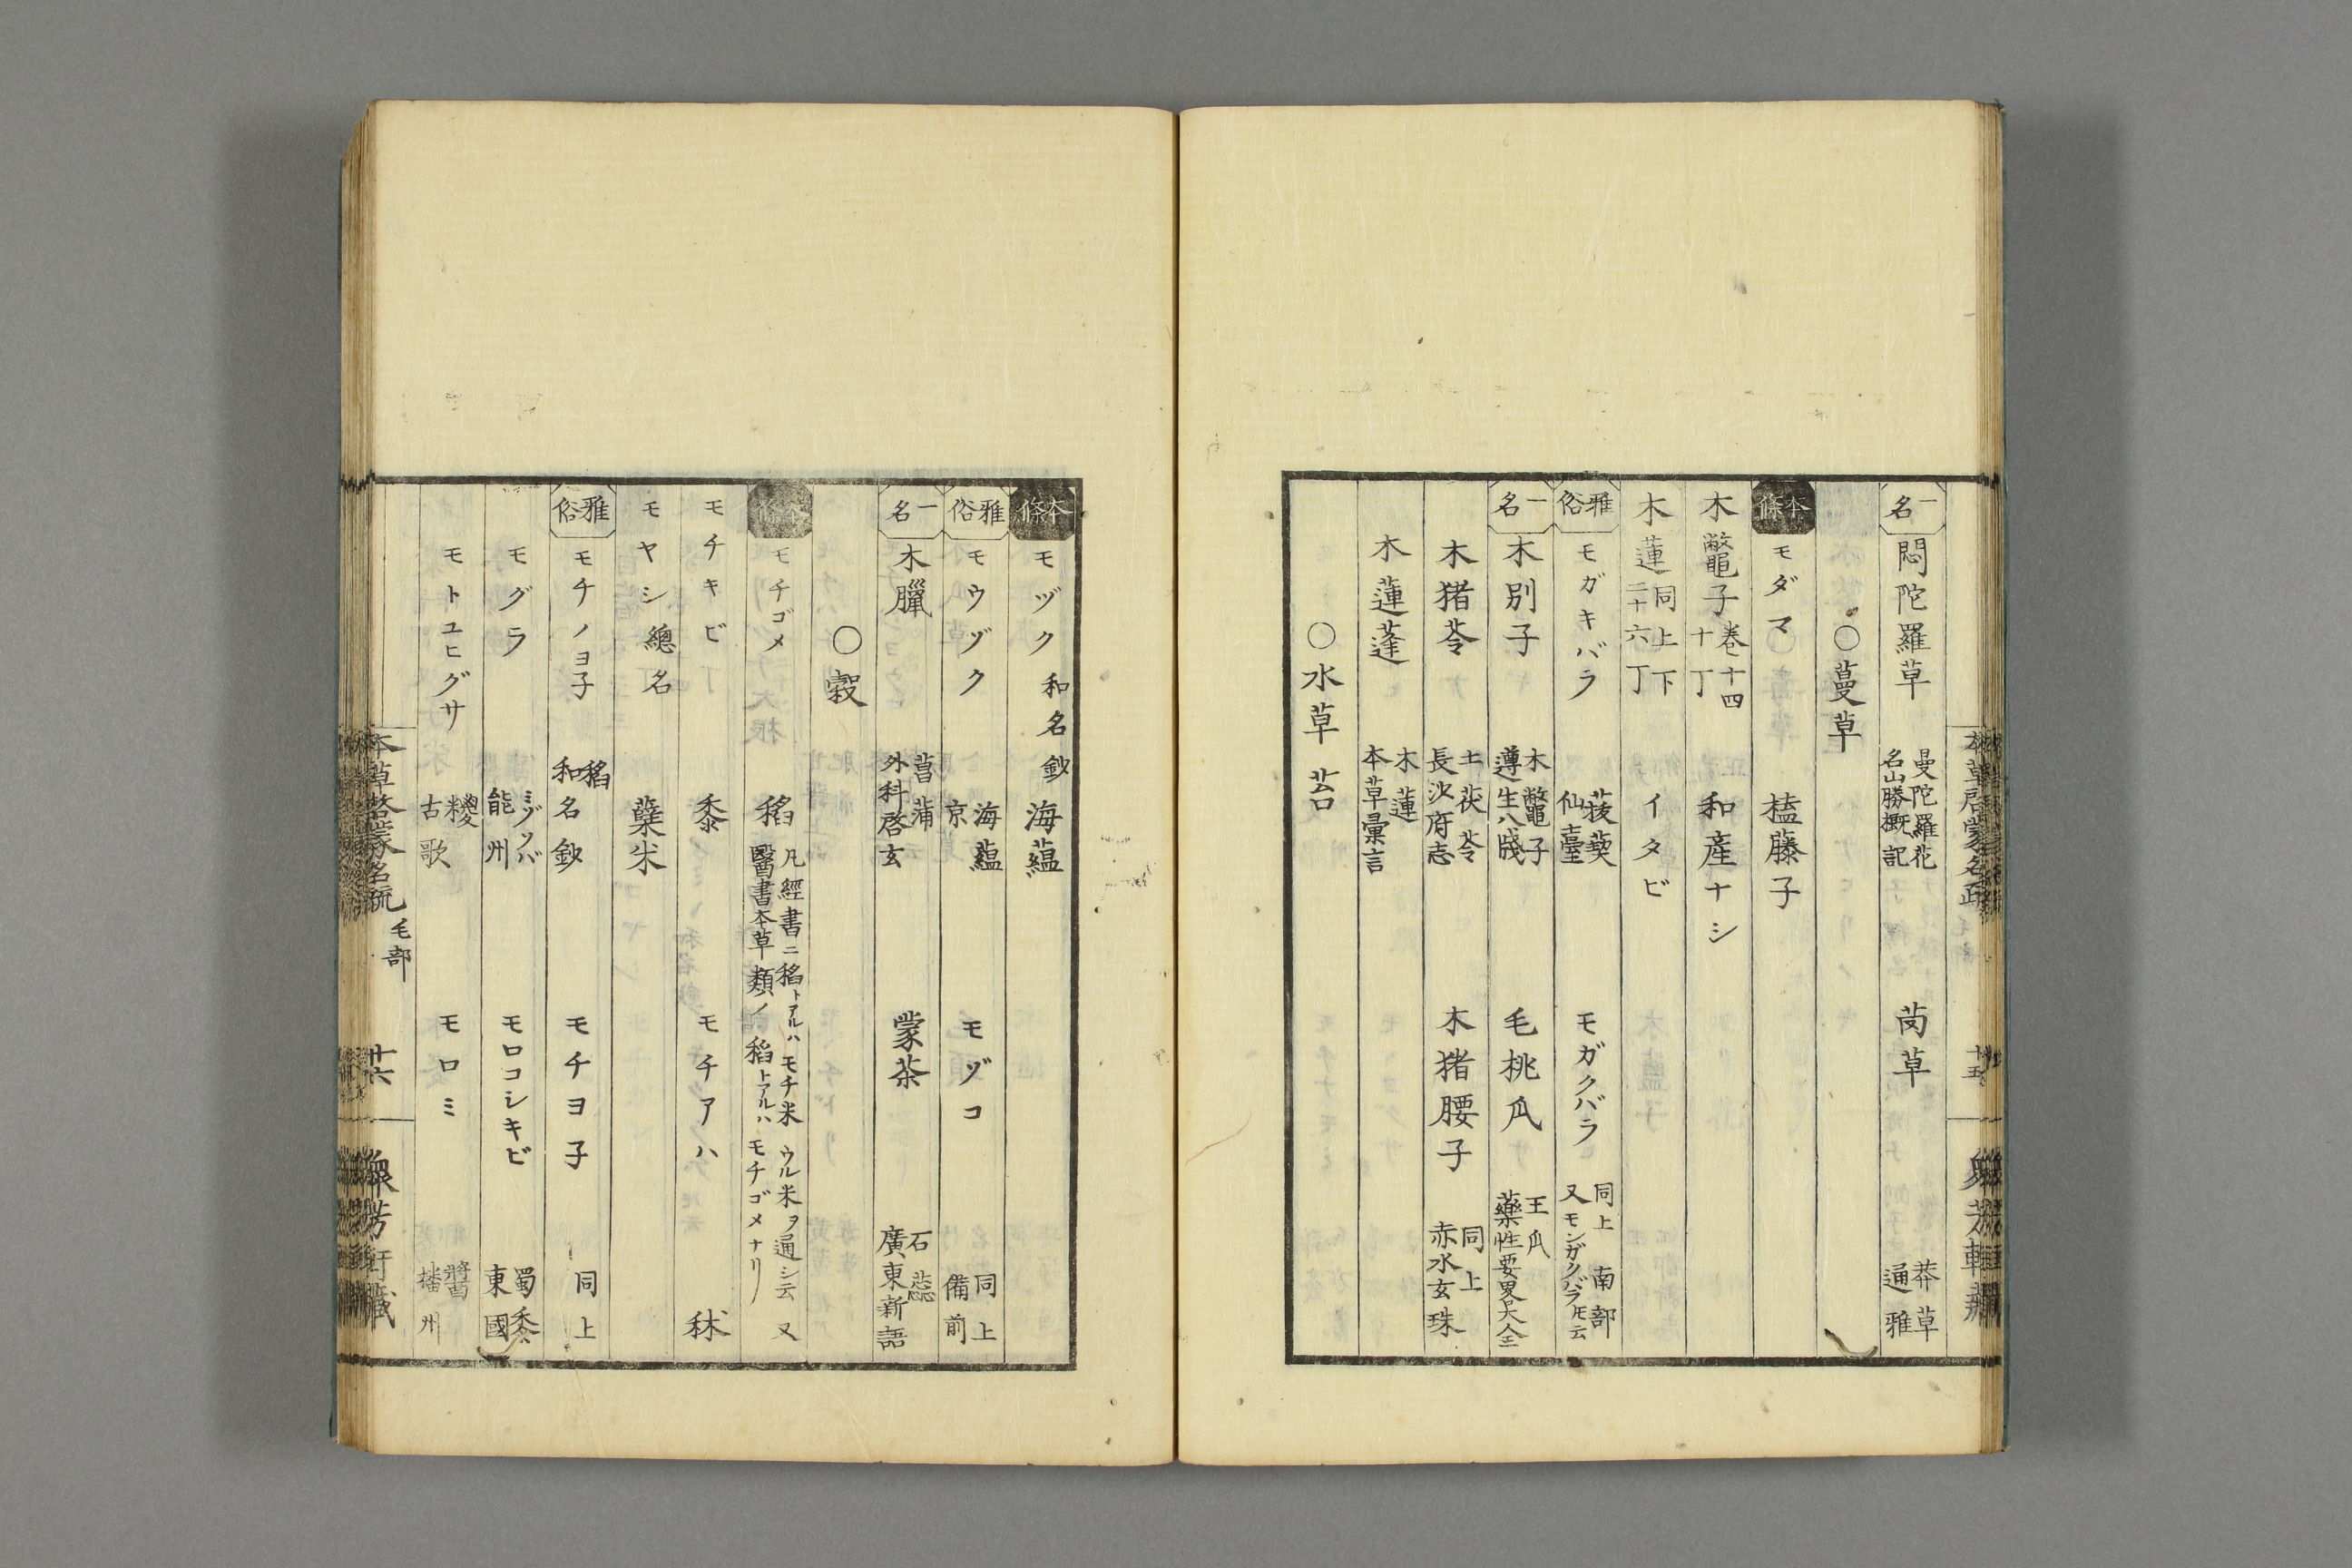 一名 悶陀羅草 曼陀羅花 名山勝概記 芮草 莽草 通雅
○蔓草
本條 モダマ 榼藤子
木鼈子 卷十四 十丁 和産ナシ
木蓮 同上下 二十六丁 イタビ
雅俗 モガキバラ 菝葜 仙臺 モガクバラ 同上 南部 又モンガクバラ𪜈云
一名 木別子 木鼈子 遵生八牋 毛桃瓜 王瓜 藥性要畧大全
木猪苓 土茯苓 長沙府志 木猪腰子 同上 赤水玄珠
木蓮蓬 木蓮 本草彙言
○水草 苔
本草啓蒙名疏 十五 衆芳軒藏
本條 モヅク 和名鈔 海蘊
雅俗 モウヅク 海蘊 京 モヅコ 同上 備前
一名 木臘 菖蒲 外科啓玄 蒙茶 石蕊 廣東新語
○穀
本條 モチゴメ 稻 凡經書ニ稻トアルハモチ米ウル米ヲ通シ云 又醫書本草類ノ稻トアルハモチゴメナリ
モチキビ 黍 モチアハ 秫
モヤシ 總名 蘗米
雅俗 モチノヨ子 稻 和名鈔 モチヨ子 同上
モグラ ミゾソバ 能州 モロコシキビ 蜀黍 東國
モトユヒグサ 糭 古歌 モロミ 醬 播州
本草啓蒙名疏 毛部 十六 衆芳軒藏